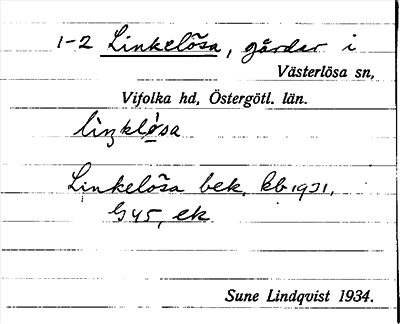 1-2 Linkelösa, gårdar i
Västerlösa sn,
Vifolka hd, Östergötl. län.
Linkelösa bek. kb 1931,
G45, ek
Sune Lindqvist 1934.